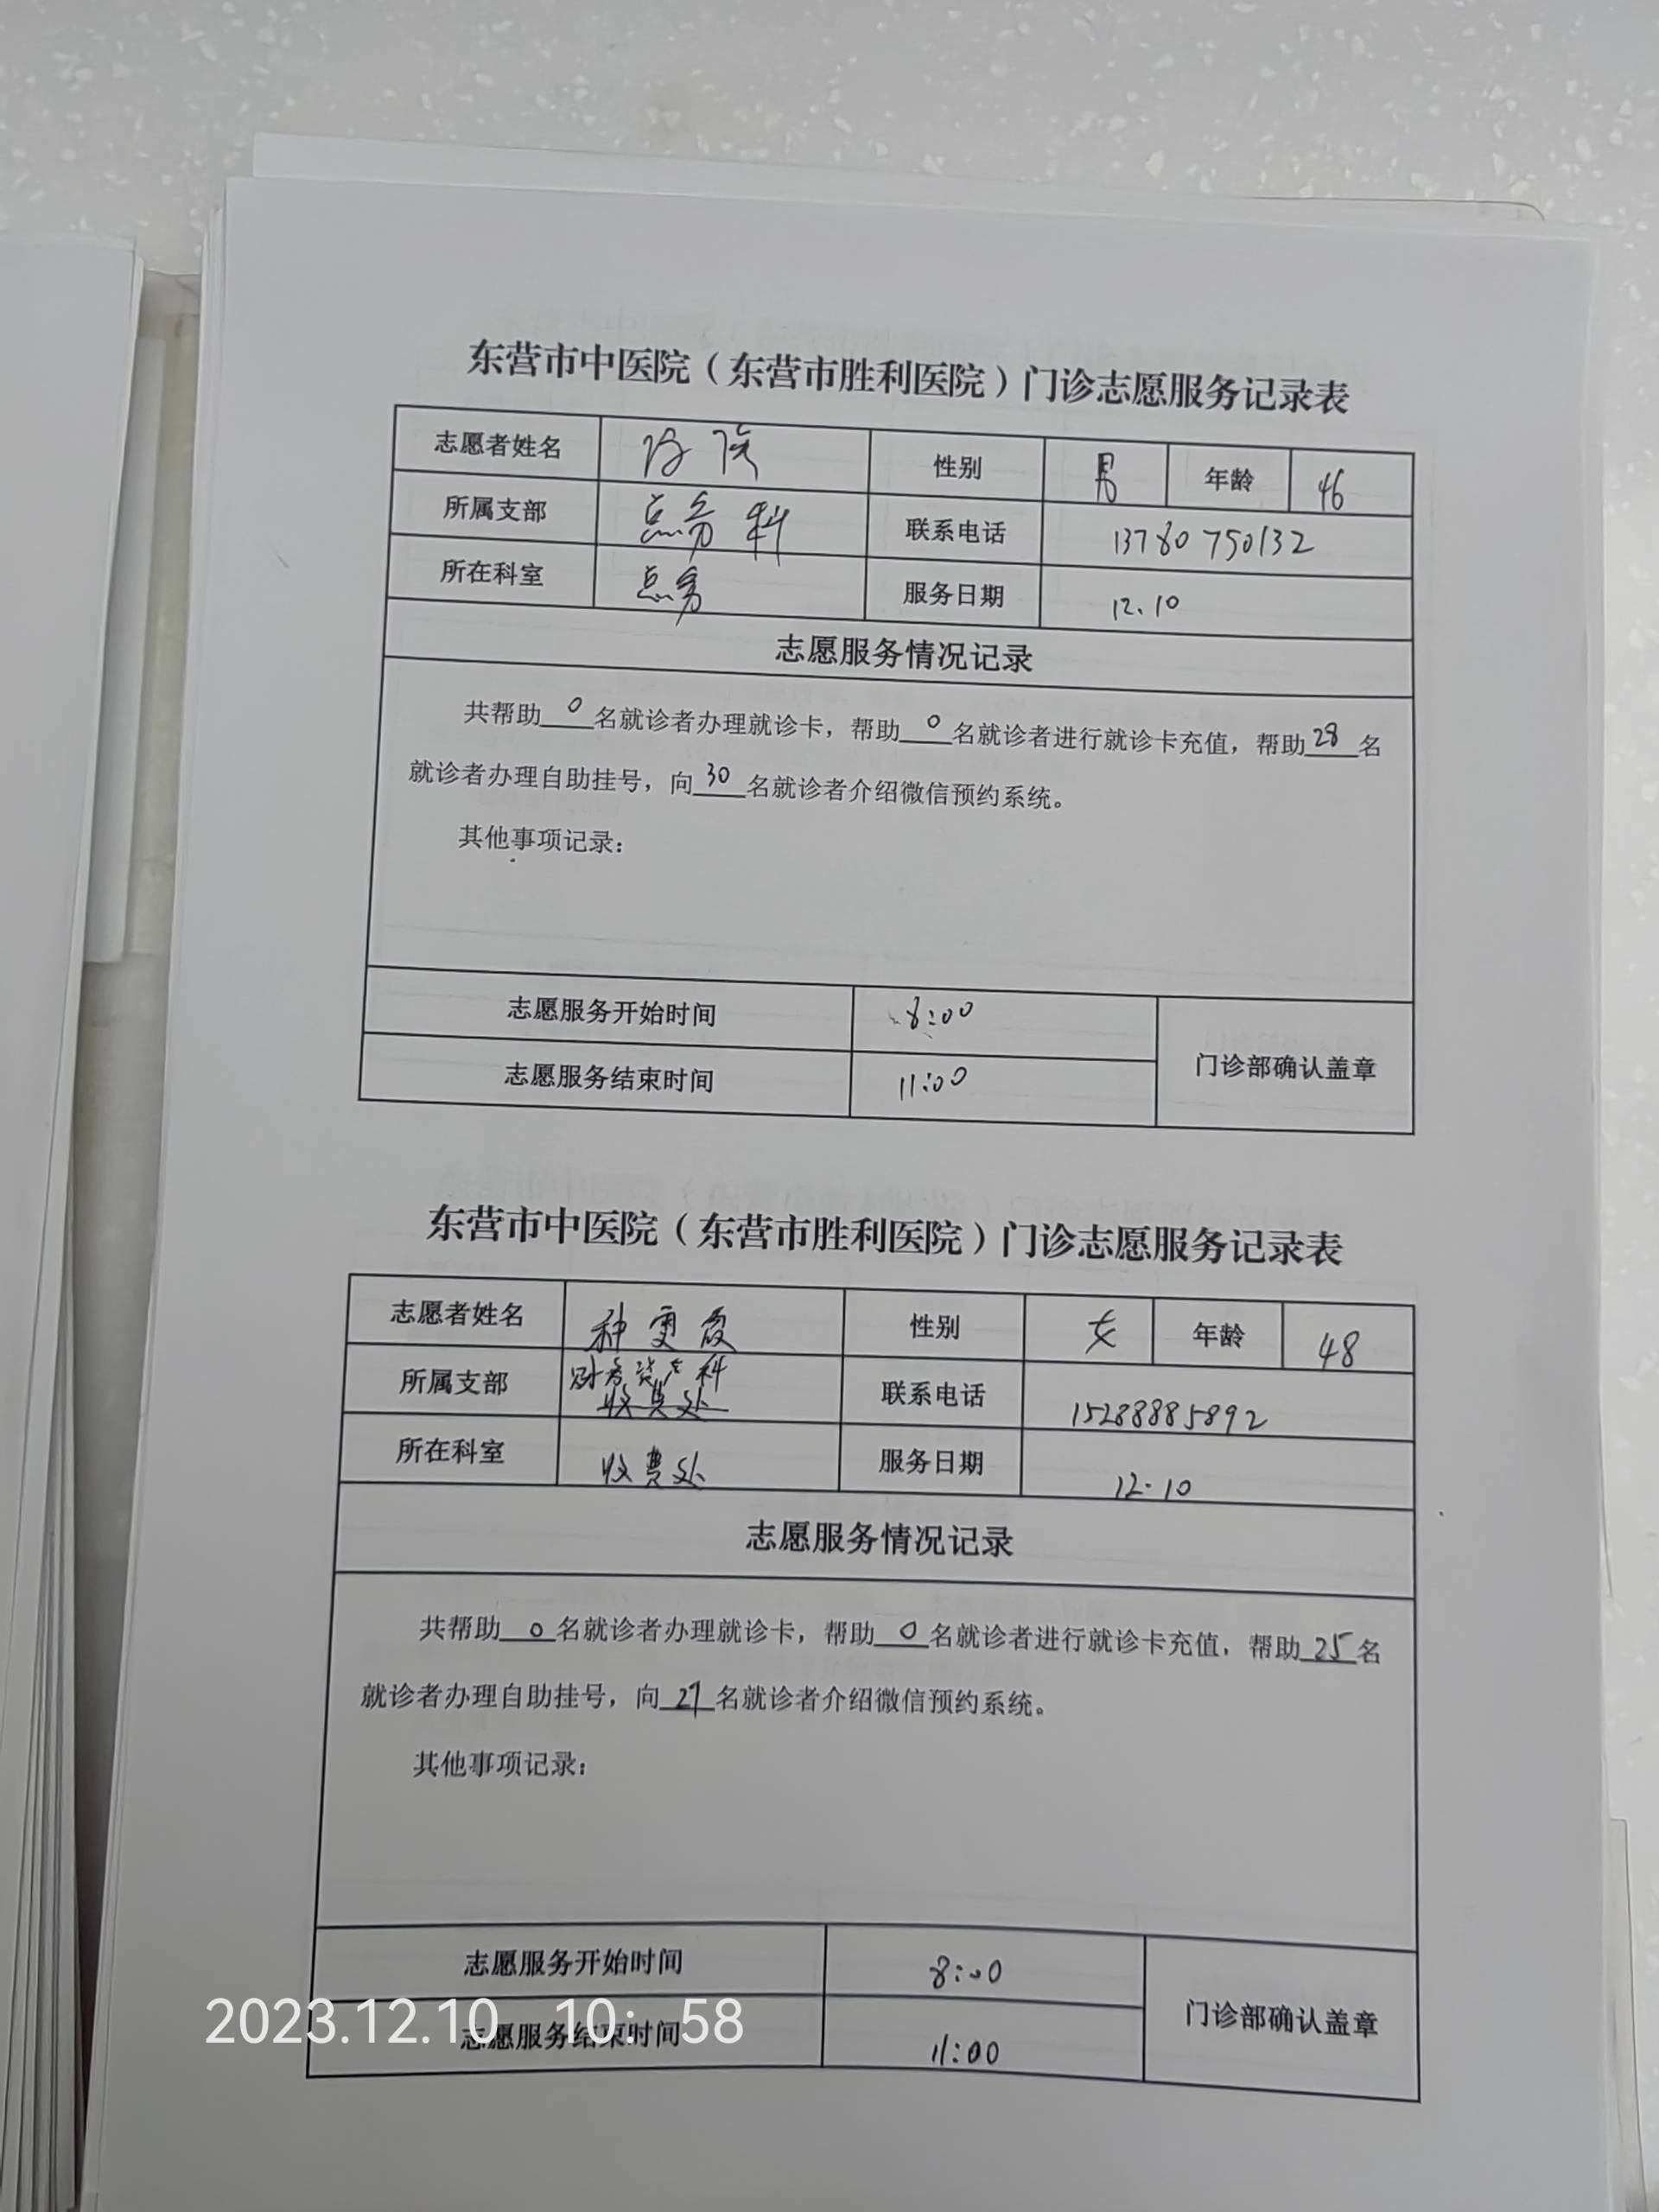 东营市中医院（东营市胜利医院）门诊志愿服务记录表
志愿者姓名 性别 男 年龄 46
所属支部 总务科 联系电话 13780750132
所在科室 总务 服务日期 12.10
志愿服务情况记录
共帮助0名就诊者办理就诊卡，帮助0名就诊者进行就诊卡充值，帮助28名
就诊者办理自助挂号，向30名就诊者介绍微信预约系统。
其他事项记录：
志愿服务开始时间 8:00
门诊部确认盖章
志愿服务结束时间 11:00
东营市中医院（东营市胜利医院）门诊志愿服务记录表
志愿者姓名 性别 女 年龄 48
所属支部 财务资产科 联系电话 15288885892
收费处
所在科室 收费处 服务日期 12.10
志愿服务情况记录
共帮助0名就诊者办理就诊卡，帮助0名就诊者进行就诊卡充值，帮助25名
就诊者办理自助挂号，向27名就诊者介绍微信预约系统。
其他事项记录：
志愿服务开始时间 8:00
门诊部确认盖章
2023.12.10 10:58
志愿服务结束时间 11:00